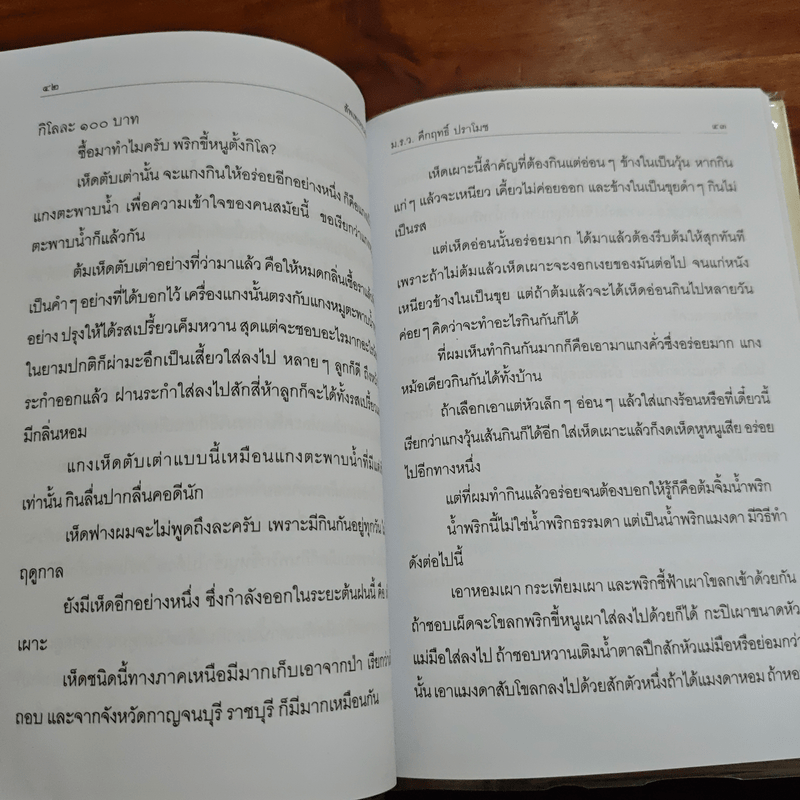 ๔๒
กิโลละ ๑๐๐ บาท
ซื้อมาทำไมครับ พริกขี้หนูตั้งกิโล?
เห็ดตับเต่านั้น จะแกงกินให้อร่อยอีกอย่างหนึ่ง ก็คือ
แกงตะพาบน้ำ เพื่อความเข้าใจของคนสมัยนี้ ขอเรียกว่า
ตะพาบน้ำก็แล้วกัน
ต้มเห็ดตับเต่าอย่างที่ว่ามาแล้ว คือให้หมดกลิ่นเชื้อรา
เป็นคำๆ อย่างที่ได้บอกไว้ เครื่องแกงนั้นตรงกับแกงหมูตะพาบน้ำ
อย่าง ปรุงให้ได้รสเปรี้ยวเค็มหวาน สุดแต่จะชอบอะไรมาก
ในยามปกติก็ผ่ามะอึกเป็นเสี้ยวใส่ลงไป หลายๆ ลูกก็ดี
ระกำออกแล้ว ฝานระกำใส่ลงไปสักสี่ห้าลูกก็จะได้ทั้งรสเปรี้ยว
มีกลิ่นหอม
แกงเห็ดตับเต่าแบบนี้เหมือนแกงตะพาบน้ำที่มี
เท่านั้น กินลื่นปากลื่นคอดีนัก
เห็ดฟางผมจะไม่พูดถึงละครับ เพราะมีกินกันอยู่ทุกวัน
ฤดูกาล
ยังมีเห็ดอีกอย่างหนึ่ง ซึ่งกำลังออกในระยะต้นฝนนี้ คือ
เผาะ
เห็ดชนิดนี้ทางภาคเหนือมีมากเก็บเอาจากป่า เรียกว่า
ถอบ และจากจังหวัดกาญจนบุรี ราชบุรี ก็มีมากเหมือนกัน
ม.ร.ว. คึกฤทธิ์ ปราโมช ๔๓
เห็ดเผาะนี้สำคัญที่ต้องกินแต่อ่อนๆ ข้างในเป็นวุ้น หากกิน
แก่ๆ แล้วจะเหนียว เคี้ยวไม่ค่อยออก และข้างในเป็นขุยดำๆ กินไม่
เป็นรส
แต่เห็ดอ่อนนั้นอร่อยมาก ได้มาแล้วต้องรีบต้มให้สุกทันที
เพราะถ้าไม่ต้มแล้วเห็ดเผาะจะงอกเงยของมันต่อไป จนแก่หนัง
เหนียวข้างในเป็นขุย แต่ถ้าต้มแล้วจะได้เห็ดอ่อนกินไปหลายวัน
ค่อยๆ คิดว่าจะทำอะไรกินกันก็ได้
ที่ผมเห็นทำกินกันมากก็คือเอามาแกงคั่วซึ่งอร่อยมาก แกง
หม้อเดียวกินกันได้ทั้งบ้าน
ถ้าเลือกเอาแต่หัวเล็กๆ อ่อนๆ แล้วใส่แกงร้อนหรือที่เดี๋ยวนี้
เรียกว่าแกงวุ้นเส้นกินก็ได้อีก ใส่เห็ดเผาะแล้วก็งดเห็ดหูหนูเสีย อร่อย
ไปอีกทางหนึ่ง
แต่ที่ผมทำกินแล้วอร่อยจนต้องบอกให้รู้ก็คือต้มจิ้มน้ำพริก
น้ำพริกนี้ไม่ใช่น้ำพริกธรรมดา แต่เป็นน้ำพริกแมงดา มีวิธีทำ
ดังต่อไปนี้
เอาหอมเผา กระเทียมเผา และพริกชี้ฟ้าเผาโขลกเข้าด้วยกัน
ถ้าชอบเผ็ดจะโขลกพริกขี้หนูเผาใส่ลงไปด้วยก็ได้ กะปิเผาขนาดหัว
แม่มือใส่ลงไป ถ้าชอบหวานเติมน้ำตาลปึกสักหัวแม่มือหรือย่อมกว่า
นั้น เอาแมงดาสับโขลกลงไปด้วยสักตัวหนึ่งถ้าได้แมงดาหอม ถ้าหอ